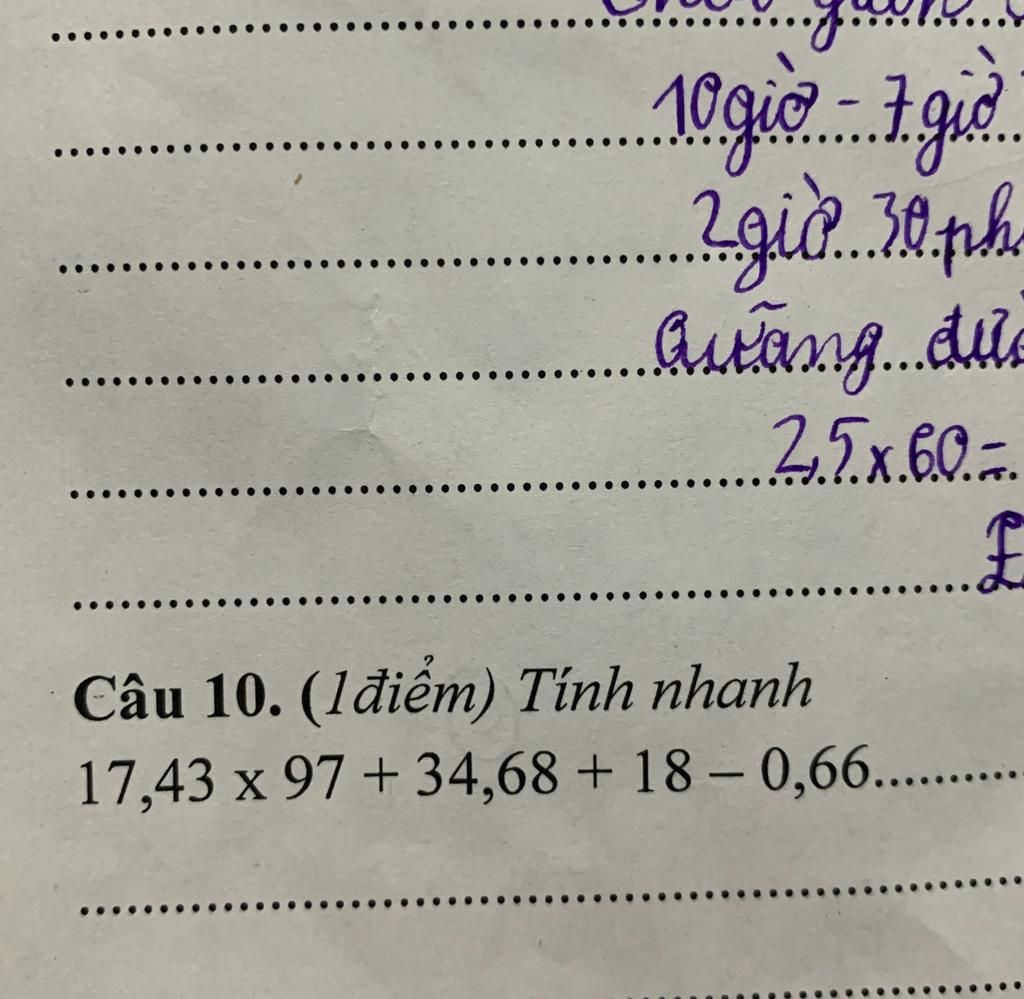 10 giờ - 7 giờ
2 giờ 30 ph
Quãng đườ
2,5 x 60 =
Câu 10. (1điểm) Tính nhanh
17,43 x 97 + 34,68 + 18 – 0,66